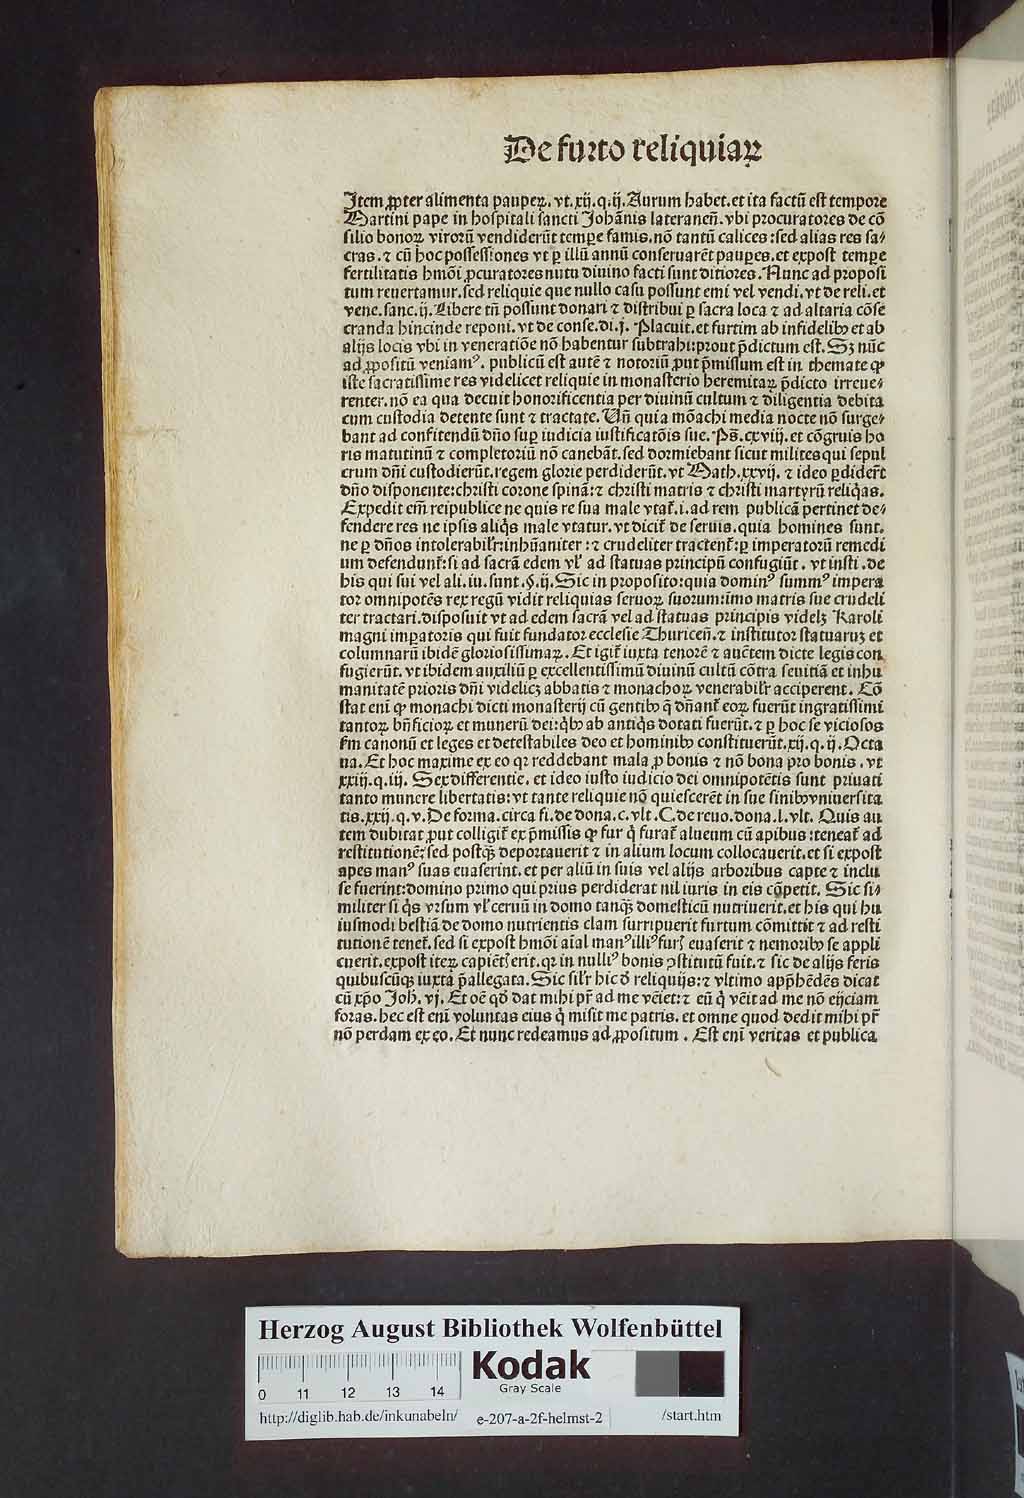 De furto reliquiaꝝ
Item ꝓpter alimenta pauperꝝ. vt .xij. q. ij. Aurum habet. et ita factū est tempore
Martini pape in hospitali sancti Johānis lateraneñ. vbi procuratores de cō
silio bonoꝝ virorū vendiderūt tempore famis. nō tantū calices: sed alias res sa⸗
cras. ⁊ cū hoc possessiones vt ꝑ illū annū conseruarēt pauꝑes. et expost temꝑe
fertilitatis hmōi ꝓcuratores nutu diuino facti sunt ditiores. Nunc ad proposi
tum reuertamur. sed reliquie que nullo casu possunt emi vel vendi. vt de reli. et
vene. sanc. ij. Libere tñ possunt donari ⁊ distribui ꝑ sacra loca ⁊ ad altaria cōse
cranda hincinde reponi. vt de conse. di. j. Placuit. et furtim ab infidelibꝰ et ab
alijs locis vbi in veneratiōe nō habentur subtrahi: prout p̄dictum est. Sꝫ nūc
ad ꝓpositū veniamꝰ. publicū est autē ⁊ notoriū ꝓut p̄missum est in themate ꝙ
iste sacratissime res videlicet reliquie in monasterio heremitaꝝ p̄dicto irreue⸗
renter. nō ea qua decuit honorificentia per diuinū cultum ⁊ diligentia debita
cum custodia detente sunt ⁊ tractate. Uñ quia mōachi media nocte nō surge⸗
bant ad confitendū dño suꝑ iudicia iustificatōis sue. Ps̄. cxviij. et cōgruis ho
ris matutinū ⁊ completoriū nō canebāt. sed dormiebant sicut milites qui sepul
crum dñi custodierūt. regem glorie perdiderūt. vt Math. xxvij. ⁊ ideo ꝑdider̄t
dño disponente: christi corone spinā: ⁊ christi matris ⁊ christi martyrū reliq̄as.
Expedit em̄ reipublice ne quis re sua male vtat̄. i. ad rem publicā pertinet de⸗
fendere res ne ipsis aliq̄s male vtatur. vt dicit̄ de seruis. quia homines sunt.
ne ꝑ dños intolerabilr̄: inhūaniter: ⁊ crudeliter tractent̄: ꝑ imperatorū remedi
um defendunt̄: si ad sacrā edem vl̄ ad statuas principū confugiūt. vt insti. de
his qui sui vel ali. iu. sunt. §. ij. Sic in proposito: quia dominꝰ summꝰ impera
tor omnipotēs rex regū vidit reliquias seruoꝝ suorum: imo matris sue crudeli
ter tractari. disposuit vt ad edem sacrā vel ad statuas principis videlꝫ Karoli
magni imꝑatoris qui fuit fundator ecclesie Thuriceñ. ⁊ institutor statuarum et
columnarū ibidē gloriosissimaꝝ. Et igit̄ iuxta tenorē ⁊ auctēm dicte legis con
fugierūt. vt ibidem auxiliū ꝑ excellentissimū diuinū cultū cōtra seuitiā et inhu
manitatē prioris dñi videlicꝫ abbatis ⁊ monachoꝝ venerabilr̄ acciperent. Cō
stat enī ꝙ monachi dicti monasterij cū gentibꝰ q̄ dn̄ant̄ eoꝝ fuerūt ingratissimi
tantoꝝ bn̄ficioꝝ et munerū dei: q̄bꝰ ab antiq̄s dotati fuerūt. ⁊ ꝑ hoc se viciosos
s̄m canonū et leges et detestabiles deo et hominibꝰ constituerūt. xij. q. ij. Octa
ua. Et hoc maxime ex eo qꝛ reddebant mala ꝓ bonis ⁊ nō bona pro bonis. vt
xxiij. q. iij. Sex differentie. et ideo iusto iudicio dei omnipotētis sunt priuati
tanto munere libertatis: vt tante reliquie nō quiescerēt in sue sinibꝰ vniuersita
tis. xxij. q. v. De forma. circa fi. de dona. c. vlt. C. de reuo. dona. l. vlt. Quis au
tem dubitat ꝓut colligit̄ ex p̄missis ꝙ fur q̄ furat̄ alueum cū apibus: teneat̄ ad
restitutionē: sed postq̄ꝫ deportauerit ⁊ in alium locum collocauerit. et si expost
apes manꝰ suas euaserint. et per aliū in suis vel alijs arboribus capte ⁊ inclu
se fuerint: domino primo qui prius perdiderat nil iuris in eis cōpetit. Sic si⸗
militer si q̄s vrsum vl̄ ceruū in domo tanq̄ꝫ domesticū nutriuerit. et his qui hu
iusmodi bestiā de domo nutrientis clam surripuerit furtum cōmittit ⁊ ad resti
tutionē tenet̄. sed si expost hmōi aīal manꝰ illiꝰ furꝭ euaserit ⁊ nemoribꝰ se appli
cuerit. expost iteꝝ capiētꝭ erit. qꝛ in nulliꝰ bonis ꝯstitutū fuit. ⁊ sic de alijs feris
quibuscūqꝫ iuxta p̄allegata. Sic silr̄ hic ð reliquijs: ⁊ vltimo app̄hēdēs dicat
cū xp̄o Joh. vj. Et oē qð dat mihi pr̄ ad me vēiet: ⁊ eū q̄ vēit ad me nō eijciam
foras. hec est enī voluntas eius q̄ misit me patris. et omne quod dedit mihi pr̄
nō perdam ex eo. Et nunc redeamus ad ꝓpositum. Est enī veritas et publica
Herzog August Bibliothek Wolfenbüttel
Kodak
Gray Scale
0 11 12 13 14
http://diglib.hab.de/inkunabeln/ e-207-a-2f-helmst-2 /start.htm